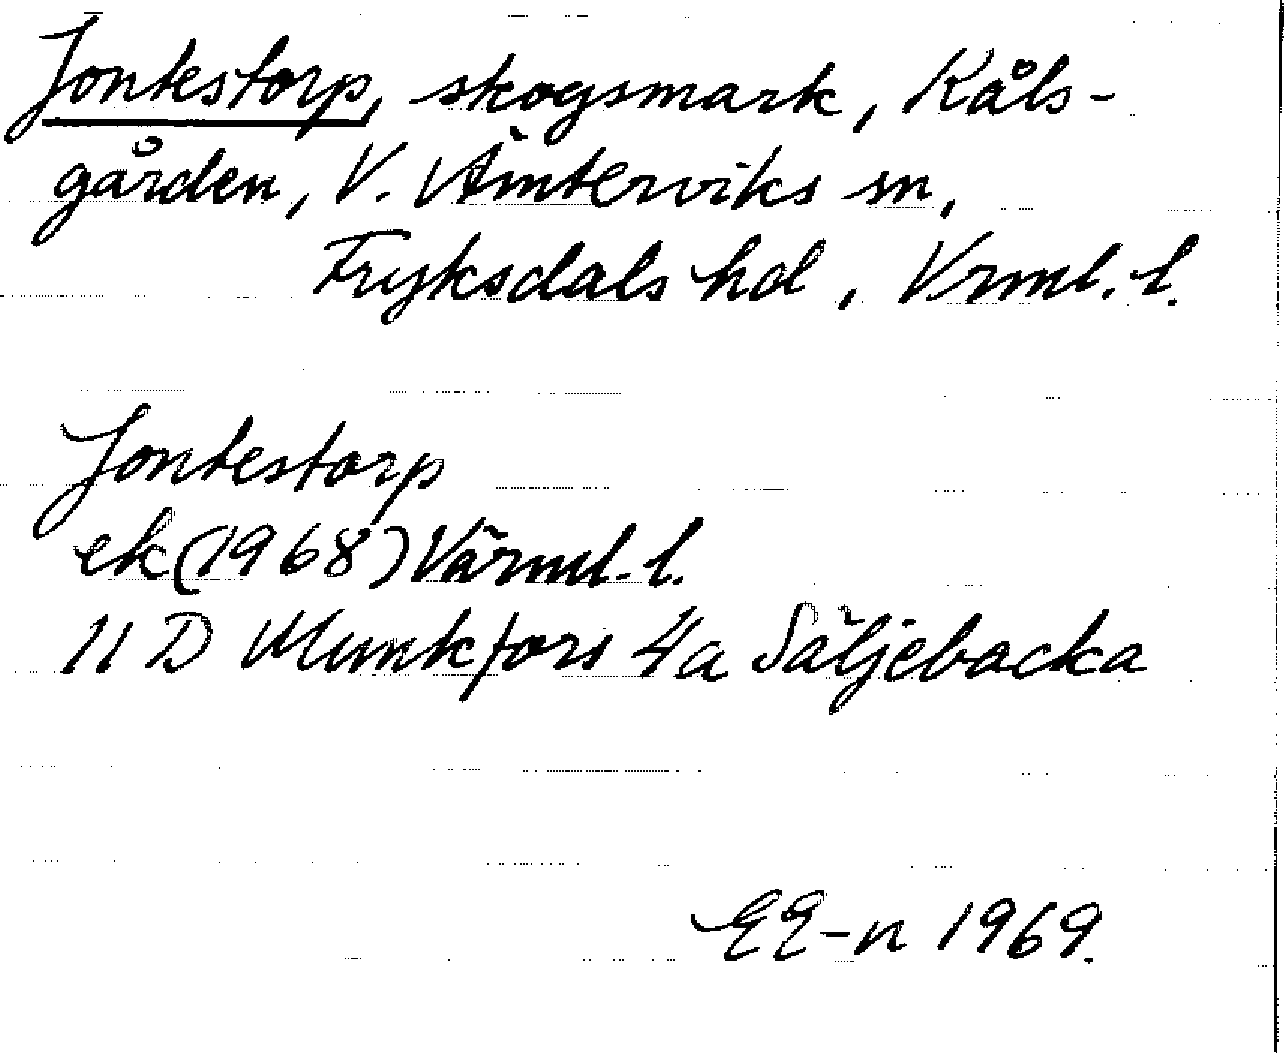 Jontestorp, skogsmark, Kåls-
gården, V. Ämterviks sn,
Fryksdals hd, Vrml. l.
Jontestorp
ek (1968) Värml. l.
11 D Munkfors 4a Säljebacka
EE-n 1969.